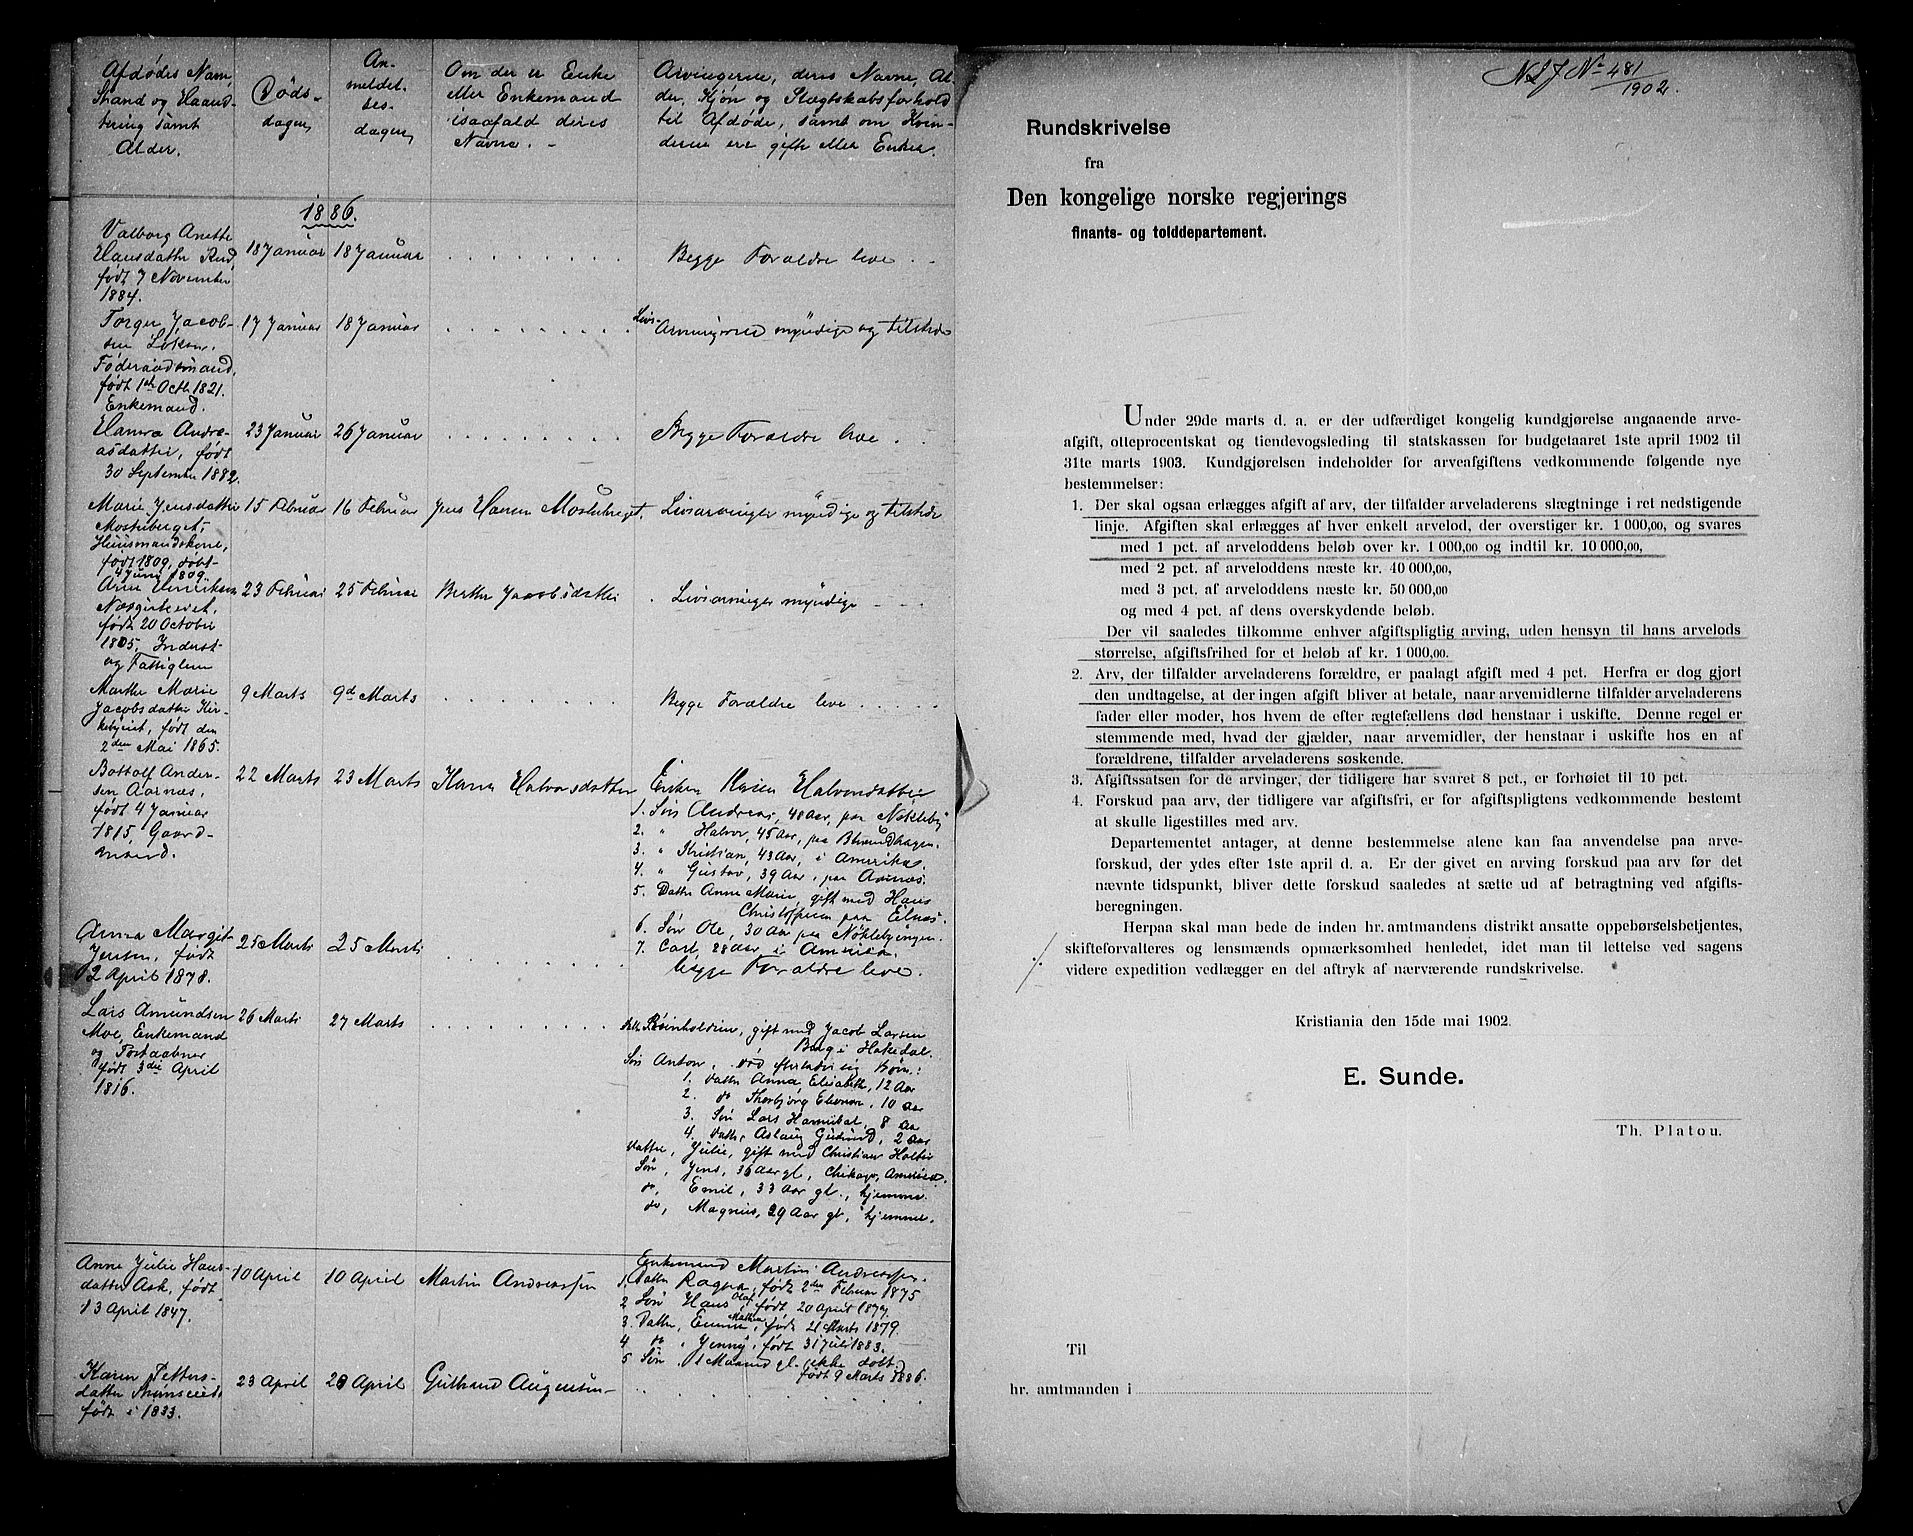 Afdødes Navn,
Stand og Haand-
tering samt
Alder.
Døds-
dagen,
An-
meldel-
ses-
dagen,
Om der er Enke
eller Enkemand
isaafald deres
Navne. -
Arvingerne, deres Navne, Al-
der, Kjøn og Slægtskabsforhold
til Afdøde, samt om Kvin-
derne ere gifte eller Enker.
1886.
Valborg Anette
Hansdatter Rud,
født 7 November
1884.
18 Januar
18 Januar
Begge Forældre leve
Torger Jacob-
sen Løken.
Føderaadsmand,
født 1ste Octb 1821.
Enkemand.
17 Januar
18 Januar
Livs-
Arvingerne myndige og tilstede
Hanna Andre-
asdatter, født
30 September 1882.
23 Januar
26 Januar
Begge Forældre leve.
Marie Jensdatter
Mosteberget,
Huusmandskone,
født 1809, døbt
4 Juni 1809.
15 Februar
16 Februar
Jens Hansen Mosteberget.
Livsarvinger myndige og tilstede
Arne Henriksen
født 20 October
1805, Inderst
og Fattiglem
23 Februar
25 Februar
Berthe Jacobsdatter
Livsarvinger myndige
Marthe Marie
Jacobsdatter Kir-
kebyeiet, født den
2den Mai 1865.
9 Marts
9d Marts
Begge Forældre leve
Bottolf Ander-
sen Aarnæs,
født 4 Januar
1815, Gaard-
mand.
22 Marts
23 Marts
Karen Halvorsdatter
Enken Karen Halvorsdatter
1. Søn Andreas, 48 Aar, paa Nøkleby
2. " Halvor, 45 Aar, paa
3. " Kristian, 43 Aar, i Amerika.
4. " Gustav, 39 Aar, paa Aarnæs.
5. Datter Anne Marie, gift med Hans
Christoffersen paa Eilnæs.
6. Søn Ole, 30 Aar paa Nøklebyengen.
7. Carl, 28 Aar i Amerika.
Anna Margit
Jensen, født
2 April 1878.
25 Marts
25 Marts
Begge Forældre leve.
Lars Amundsen
Moe, Enkemand
og Postaabner
født 3die April
1816.
26 Marts
27 Marts
Dtr. Reinholdine, gift med Jacob Larsen
Berg i Hakedal.
Søn Anton, død efterladt sig Børn:
1. Datter Anna Elisabeth, 12 Aar
2. do Thorbjørg Eleonore, 10 Aar
3. Søn Lars Hannibal, 8 Aar
4. Datter Aslaug Gudrund, 2 Aar
Datter, Julie, gift med Christian Holter
Søn, Jens, 36 Aar gl, Chikago, Amerika.
do, Emil, 33 Aar gl., hjemme.
do, Magnus, 29 Aar gl, hjemme.
Anne Julie Hans-
datter Ask, født
13 April 1847.
10 April
10 April
Martin Andreassen
Enkemand Martin Andreassen.
1. Datter Ragna, født 2den Februar 1875
2 Søn Hans Olaf, født 20 April 1877.
3. Datter, Emma Mathea, født 21 Marts 1879.
4 do, Jenny, født 31 Juli 1883.
5 Søn, 1 Maaned gl. (ikke døbt)
født 9 Marts 1886.
Karen Petters-
datter
født i 1833.
23 April
28 April
Gulbrand Augensen
NLJ No 481/1902.
Rundskrivelse
fra
Den kongelige norske regjerings
finants- og tolddepartement.
Under 29de marts d. a. er der udfærdiget kongelig kundgjørelse angaaende arve-
afgift, otteprocentskat og tiendevogsleding til statskassen for budgetaaret 1ste april 1902 til
31te marts 1903. Kundgjørelsen indeholder for arveafgiftens vedkommende følgende nye
bestemmelser:
1. Der skal ogsaa erlægges afgift af arv, der tilfalder arveladerens slægtninge i ret nedstigende
linje. Afgiften skal erlægges af hver enkelt arvelod, der overstiger kr. 1 000,00, og svares
med 1 pct. af arveloddens beløb over kr. 1 000,00 og indtil kr. 10 000,00,
med 2 pct. af arveloddens næste kr. 40 000,00,
med 3 pct. af arveloddens næste kr. 50 000,00
og med 4 pct. af dens overskydende beløb.
Der vil saaledes tilkomme enhver afgiftspligtig arving, uden hensyn til hans arvelods
størrelse, afgiftsfrihed for et beløb af kr. 1 000,00.
2. Arv, der tilfalder arveladerens forældre, er paalagt afgift med 4 pct. Herfra er dog gjort
den undtagelse, at der ingen afgift bliver at betale, naar arvemidlerne tilfalder arveladerens
fader eller moder, hos hvem de efter ægtefællens død henstaar i uskifte. Denne regel er
stemmende med, hvad der gjælder, naar arvemidler, der henstaar i uskifte hos en af
forældrene, tilfalder arveladerens søskende.
3. Afgiftssatsen for de arvinger, der tidligere har svaret 8 pct., er forhøiet til 10 pct.
4. Forskud paa arv, der tidligere var afgiftsfri, er for afgiftspligtens vedkommende bestemt
at skulle ligestilles med arv.
Departementet antager, at denne bestemmelse alene kan faa anvendelse paa arve-
forskud, der ydes efter 1ste april d. a. Er der givet en arving forskud paa arv før det
nævnte tidspunkt, bliver dette forskud saaledes at sætte ud af betragtning ved afgifts-
beregningen.
Herpaa skal man bede de inden hr. amtmandens distrikt ansatte oppebørselsbetjentes,
skifteforvalteres og lensmænds opmærksomhed henledet, idet man til lettelse ved sagens
videre expedition vedlægger en del aftryk af nærværende rundskrivelse.
Kristiania den 15de mai 1902.
E. Sunde.
Th. Platou.
Til
hr. amtmanden i